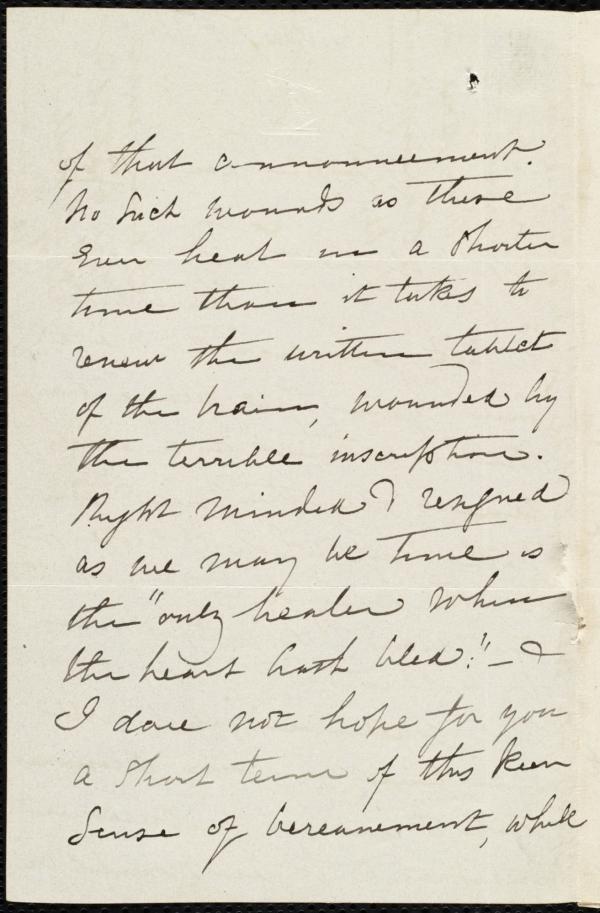 of that announcement.
No such wounds as these
Ever heal in a shorter
time than it takes to
renew the written tablet
of the brain, wounded by
the terrible inscription.
Right minded & resigned
as we may be Time is
the "only healer when
the heart hath bled:" – &
I dare not hope for you
a short term of this keen
Sense of bereavement, while